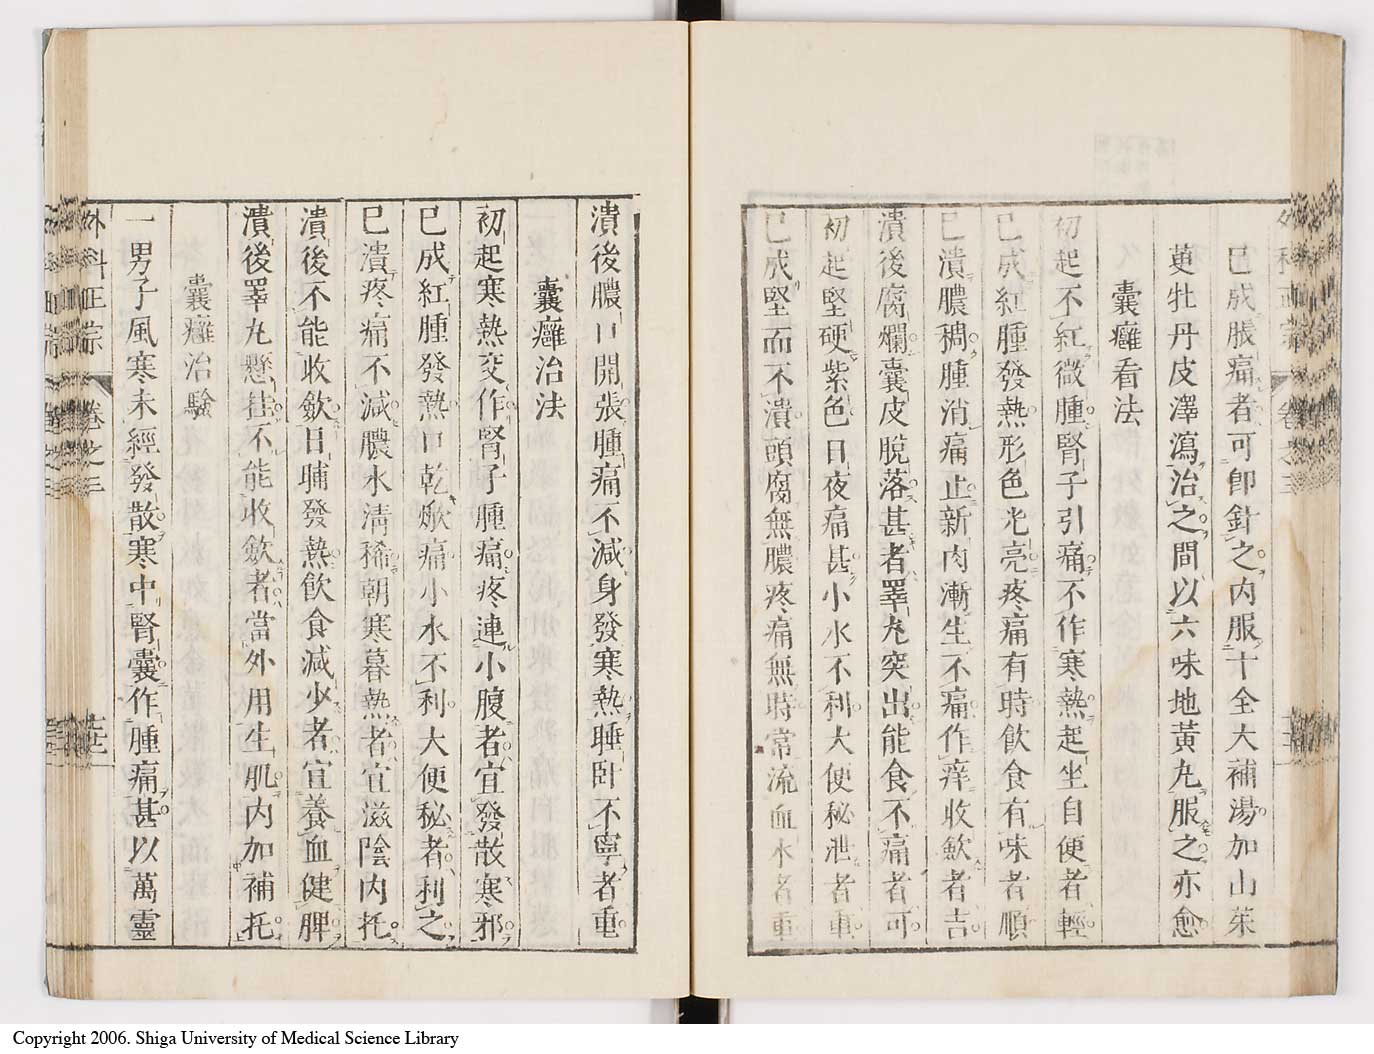 已成脹痛者可卽針之内服十全大補湯加山茱
萸牡丹皮澤瀉治之間以六味地黃丸服之亦愈
囊癰看法
初起不紅微腫腎子引痛不作寒熱起坐自便者輕
已成紅腫發熱形色光亮疼痛有時飲食有味者順
已潰膿稠腫消痛止新肉漸生不痛作痒收歛者吉
潰後腐爛囊皮脫落甚者睪丸突出能食不痛者可
初起堅硬紫色日夜痛甚小水不利大便秘泄者重
已成堅而不潰頭腐無膿疼痛無時常流血水者重
潰後膿口開張腫痛不減身發寒熱睡卧不寧者重
囊癰治法
初起寒熱交作腎子腫痛疼連小腹者宜發散寒邪
已成紅腫發熱口乾焮痛小水不利大便秘者利之
已潰疼痛不減膿水清稀朝寒暮熱者宜滋陰内托
潰後不能收歛日晡發熱飲食減少者宜養血健脾
潰後睪丸懸挂不能收歛者當外用生肌内加補托
囊癰治驗
一男子風寒未經發散寒中腎囊作腫痛甚以萬靈
外科正宗 卷之三
Copyright 2006. Shiga University of Medical Science Library